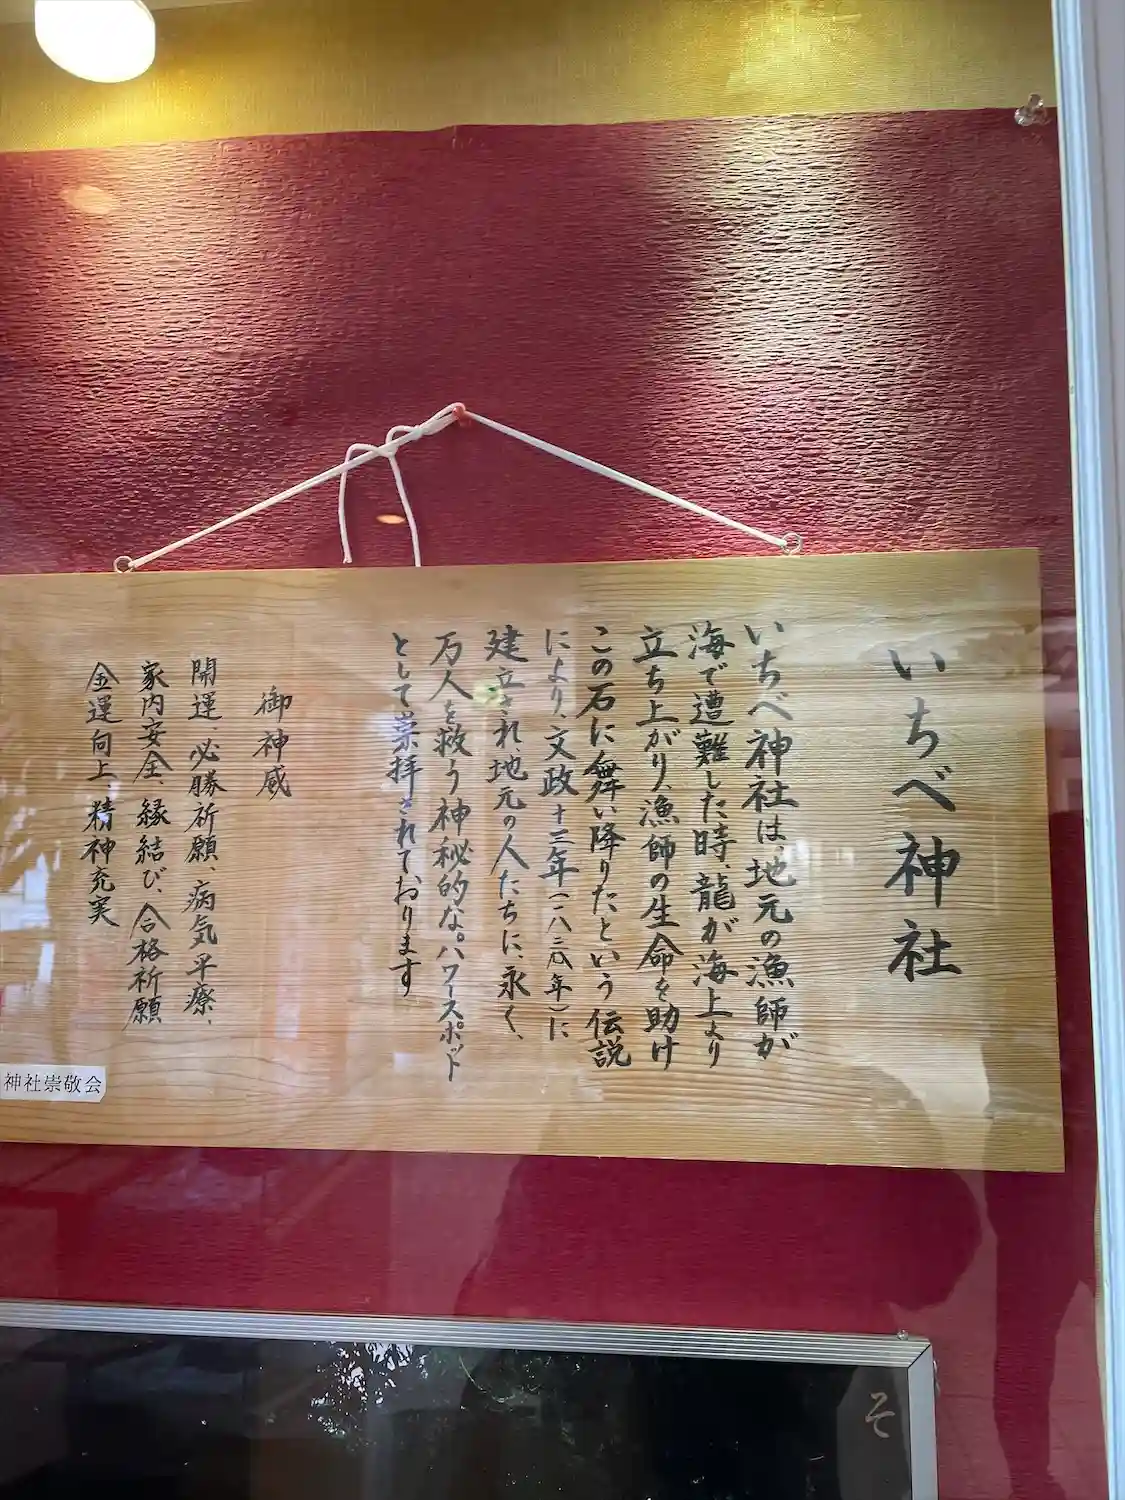 いちべ神社
いちべ神社は、地元の漁師が
海で遭難した時、龍が海上より
立ち上がり、漁師の生命を助け
この石に舞い降りたという伝説
により、文政十三年(一八三〇年)に
建立され、地元の人たちに、永く、
万人を救う神秘的な。パワースポット
として崇拝されております
御神威
開運、必勝祈願、病気平療、
家内安全、縁結び、合格祈願
金運向上、精神充実
神社崇敬会
そ